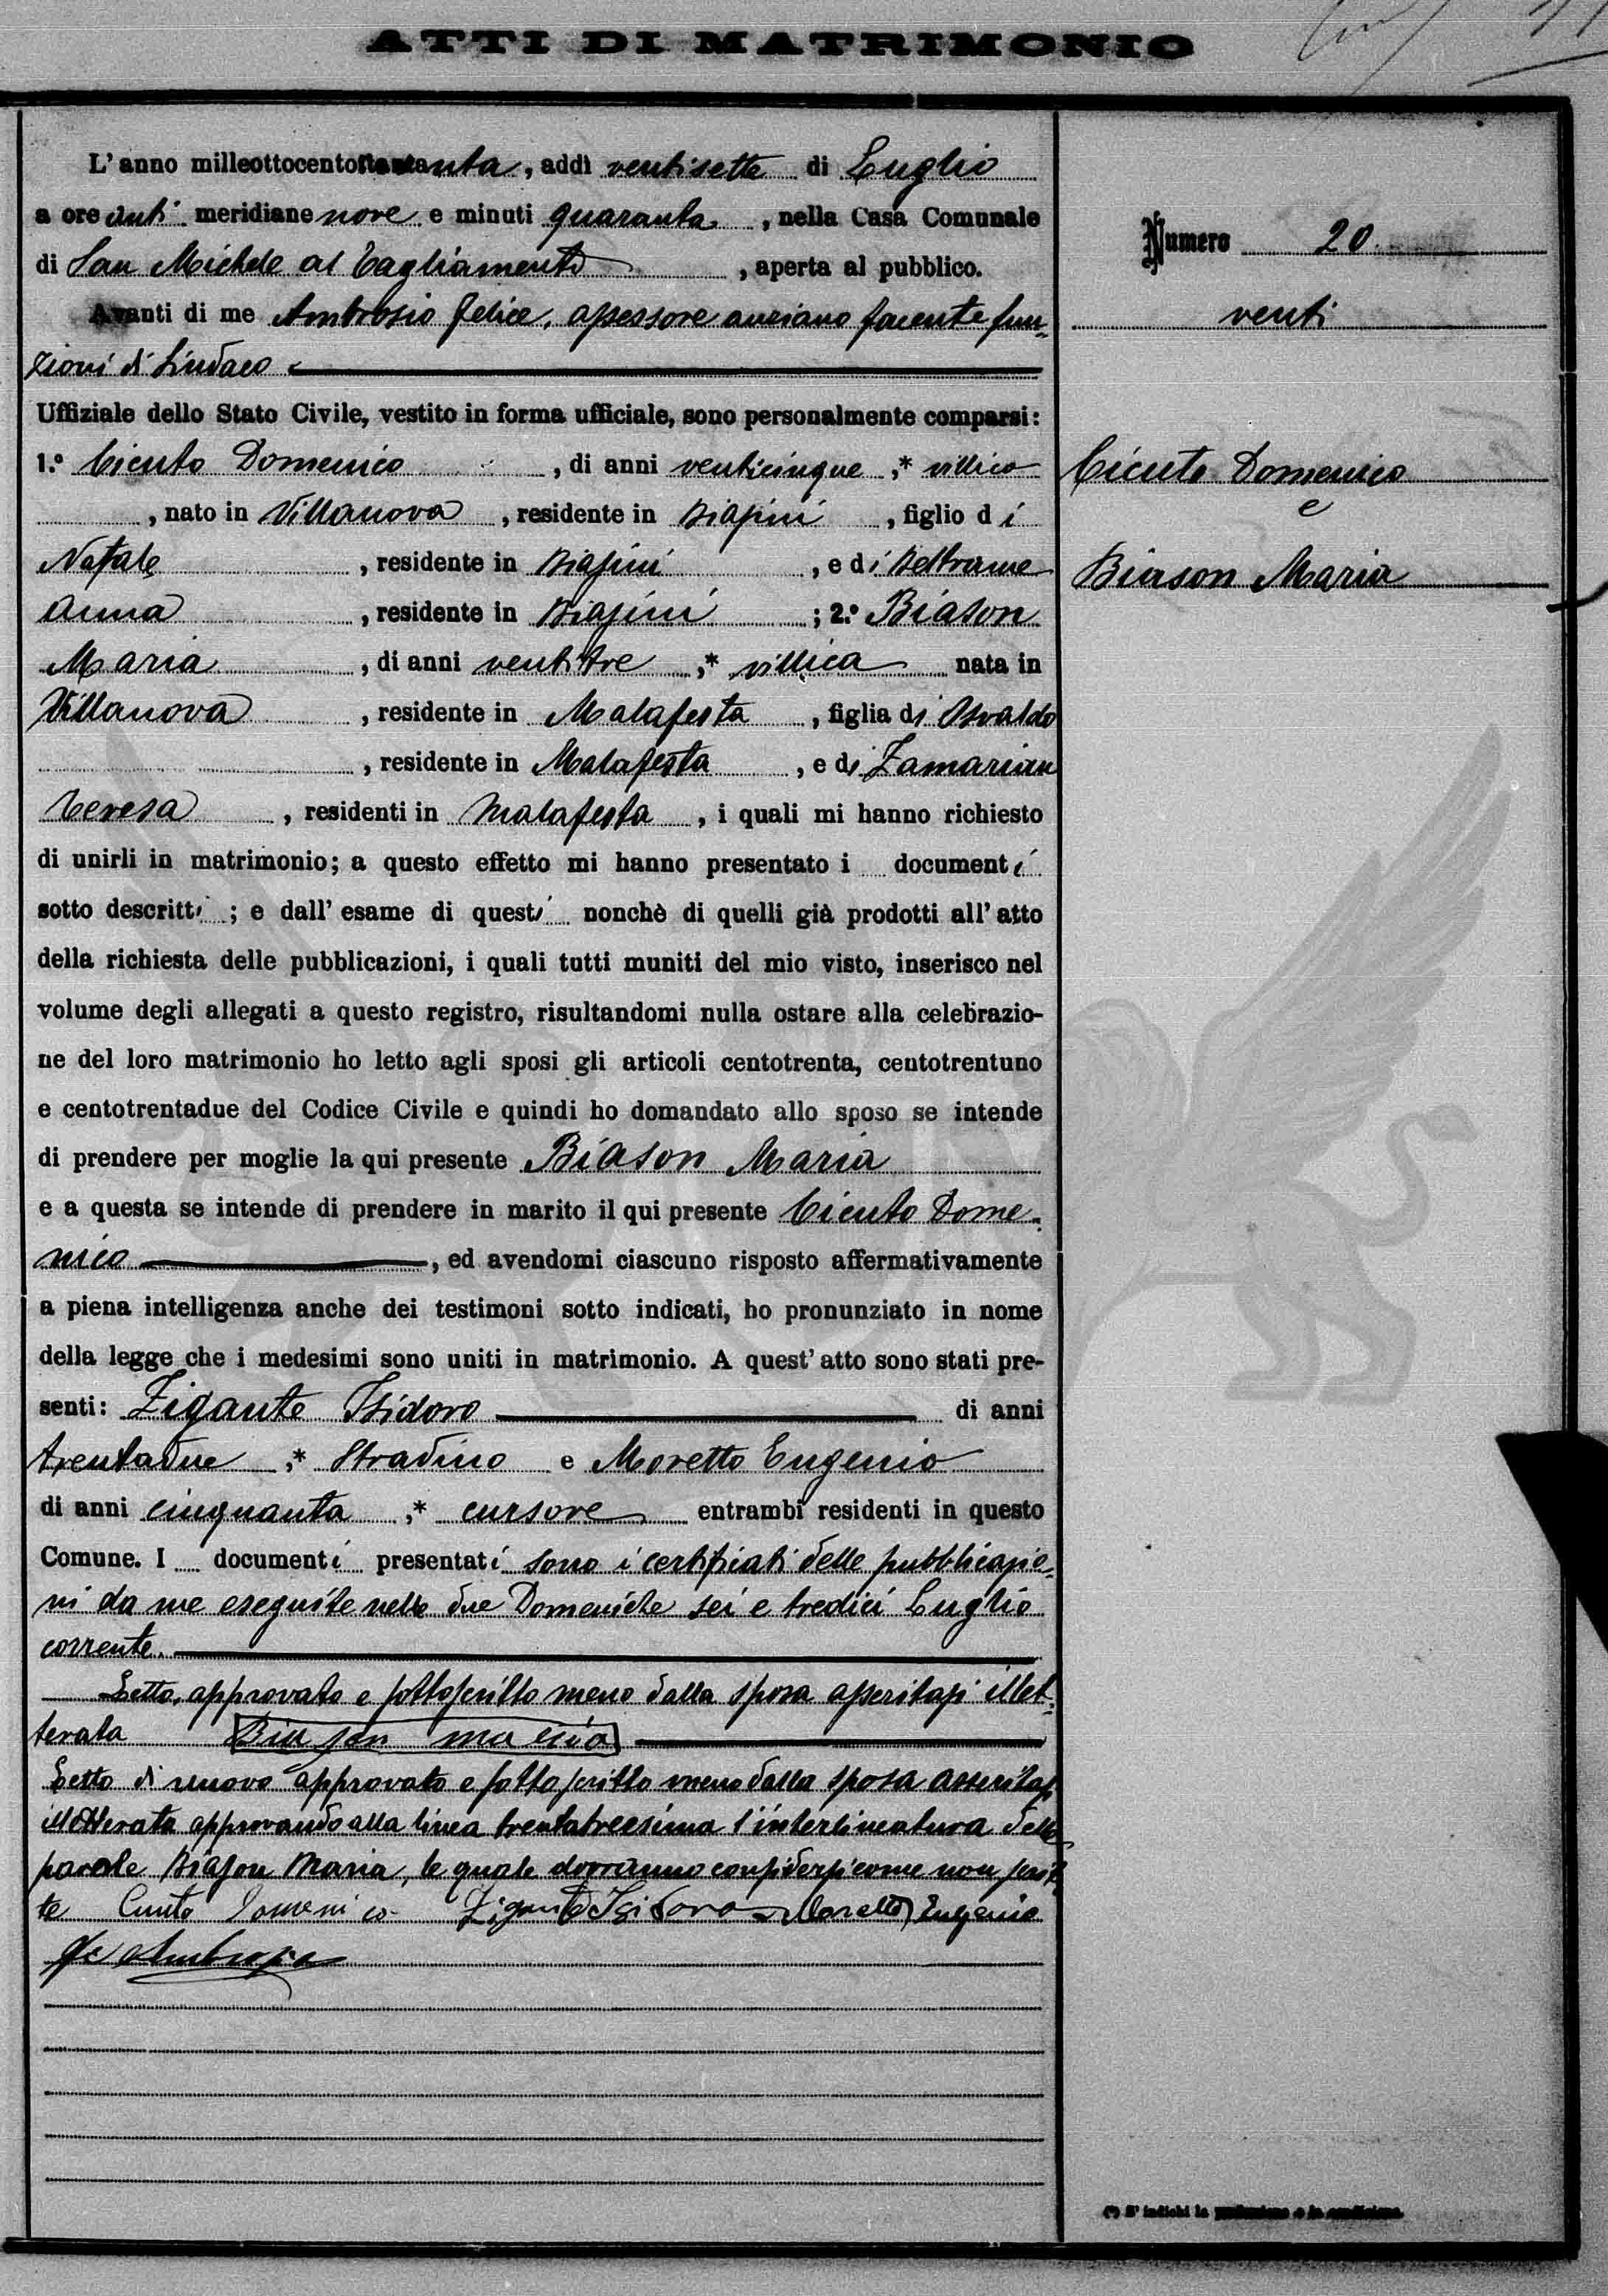 ATTI DI MATRIMONIO
L'anno milleottocento nta, addì ventisette di Luglio
a ore anti meridiane nove e minuti quaranta, nella Casa Comunale
di San Michele al Tagliamento, aperta al pubblico.
Avanti di me Ambrosio Felice, assessore anziano facente fun-
zioni di Sindaco
Uffiziale dello Stato Civile, vestito in forma ufficiale, sono personalmente comparsi:
1.° Cicuto Domenico, di anni venticinque,* villico
, nato in Villanova, residente in Biasini, figlio di
Natale, residente in Biasini, e di Beltrame
Anna, residente in Biasini; 2.° Biason
Maria, di anni ventitre,* villica nata in
Villanova, residente in Malafesta, figlia di Osvaldo
, residente in Malafesta, e di Zamarian
Teresa, residenti in Malafesta, i quali mi hanno richiesto
di unirli in matrimonio; a questo effetto mi hanno presentato i documenti
sotto descritti; e dall'esame di questi nonchè di quelli già prodotti all'atto
della richiesta delle pubblicazioni, i quali tutti muniti del mio visto, inserisco nel
volume degli allegati a questo registro, risultandomi nulla ostare alla celebrazio-
ne del loro matrimonio ho letto agli sposi gli articoli centotrenta, centotrentuno
e centotrentadue del Codice Civile e quindi ho domandato allo sposo se intende
di prendere per moglie la qui presente Biason Maria
e a questa se intende di prendere in marito il qui presente Cicuto Dome-
nico, ed avendomi ciascuno risposto affermativamente
a piena intelligenza anche dei testimoni sotto indicati, ho pronunziato in nome
della legge che i medesimi sono uniti in matrimonio. A quest'atto sono stati pre-
senti: Zigante Isidoro di anni
trentadue,* Stradino e Moretto Eugenio
di anni cinquanta,* cursore entrambi residenti in questo
Comune. I documenti presentati sono i certificati delle pubblicazio-
ni da me eseguite nelle due Domeniche sei e tredici Luglio
corrente.
Letto, approvato e sottoscritto meno dalla sposa asseritasi illet-
terata Bia son maria
Letto di nuovo approvato e sottoscritto meno dalla sposa asseritasi
illetterata approvando alla linea trentatreesima l'interlineatura delle
parole Biason Maria, le quale dovranno considersi come non scrit-
te Cicuto Domenico Zigante Isidoro Moretto Eugenio
Fe Ambrosio
Numero 20
venti
Cicuto Domenico
e
Biason Maria
(*) S'indichi la professione o la condizione.